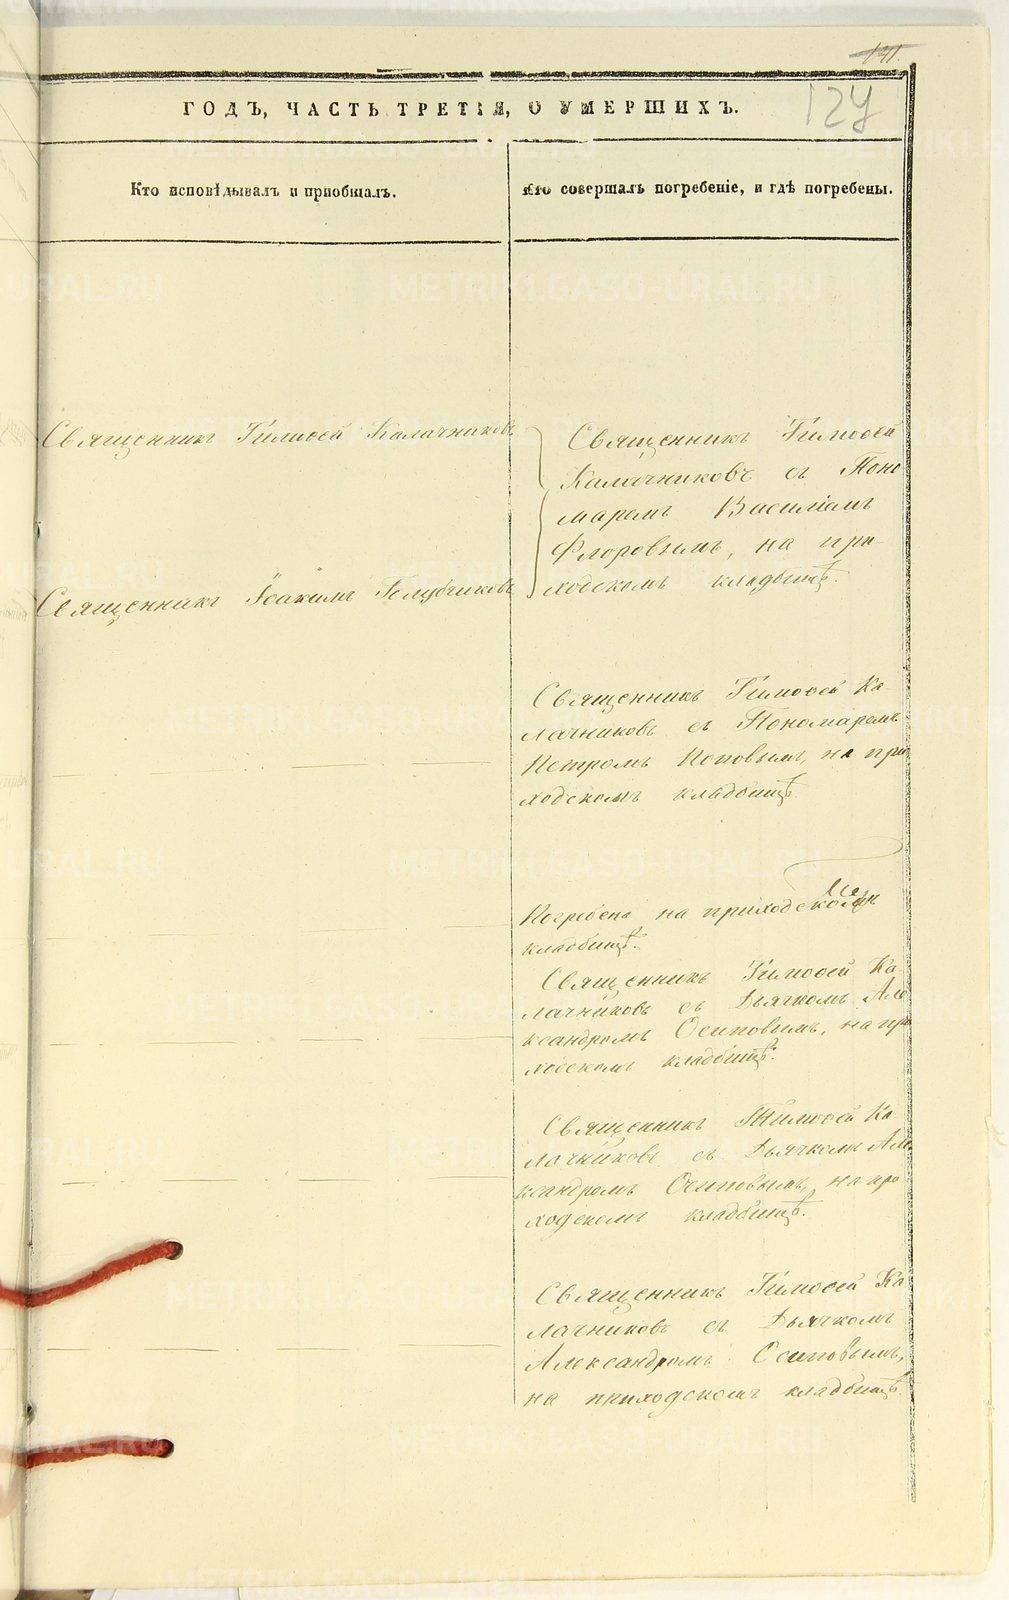 141.
124
ГОДЪ, ЧАСТЬ ТРЕТІЯ, О УМЕРШИХЪ.
Кто исповѣдывалъ и пріобщалъ.
Кто совершалъ погребеніе, и гдѣ погребены.
Священникъ Тимофей Калачниковъ
Священникъ Тимофей
Калачниковъ съ Поно
маремъ Василіемъ
Флоровымъ, на при-
ходскомъ кладбищѣ.
Священникъ Іоакимъ Голубчиковъ
Священникъ Тимофей Ка-
лачниковъ съ Пономаремъ
Петромъ Поповымъ, на при
ходскомъ кладбищѣ
Погребена на приходскомъ
кладбищѣ.
Священникъ Тимофей Ка-
лачниковъ съ Дьячкомъ Але
ксандромъ Осиповымъ, на при
ходскомъ кладбищѣ.
Священникъ Тимофей Ка
лачниковъ съ Дьячкомъ Але
ксандромъ Осиповымъ, на при
ходскомъ кладбищѣ.
Священникъ Тимофей Ка
лачниковъ съ Дьячкомъ
Александромъ Осиповымъ,
на приходскомъ кладбищѣ.
METRIKI.GASO-URAL.RU